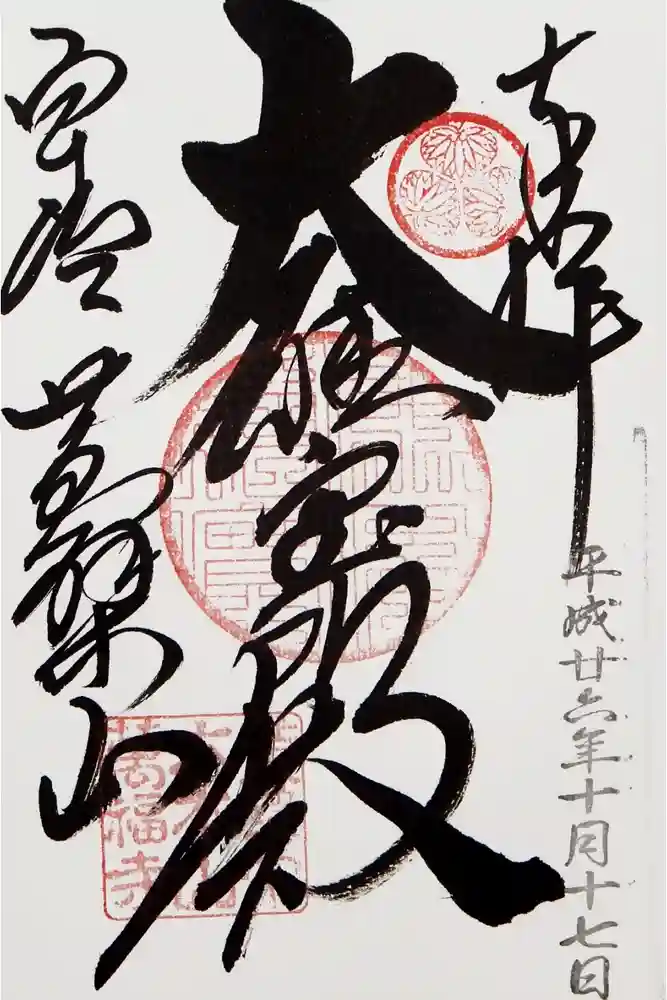 奉拝
平成廿六年十月十七日
大雄宝殿
宇治 黄檗山
大本山
萬福寺